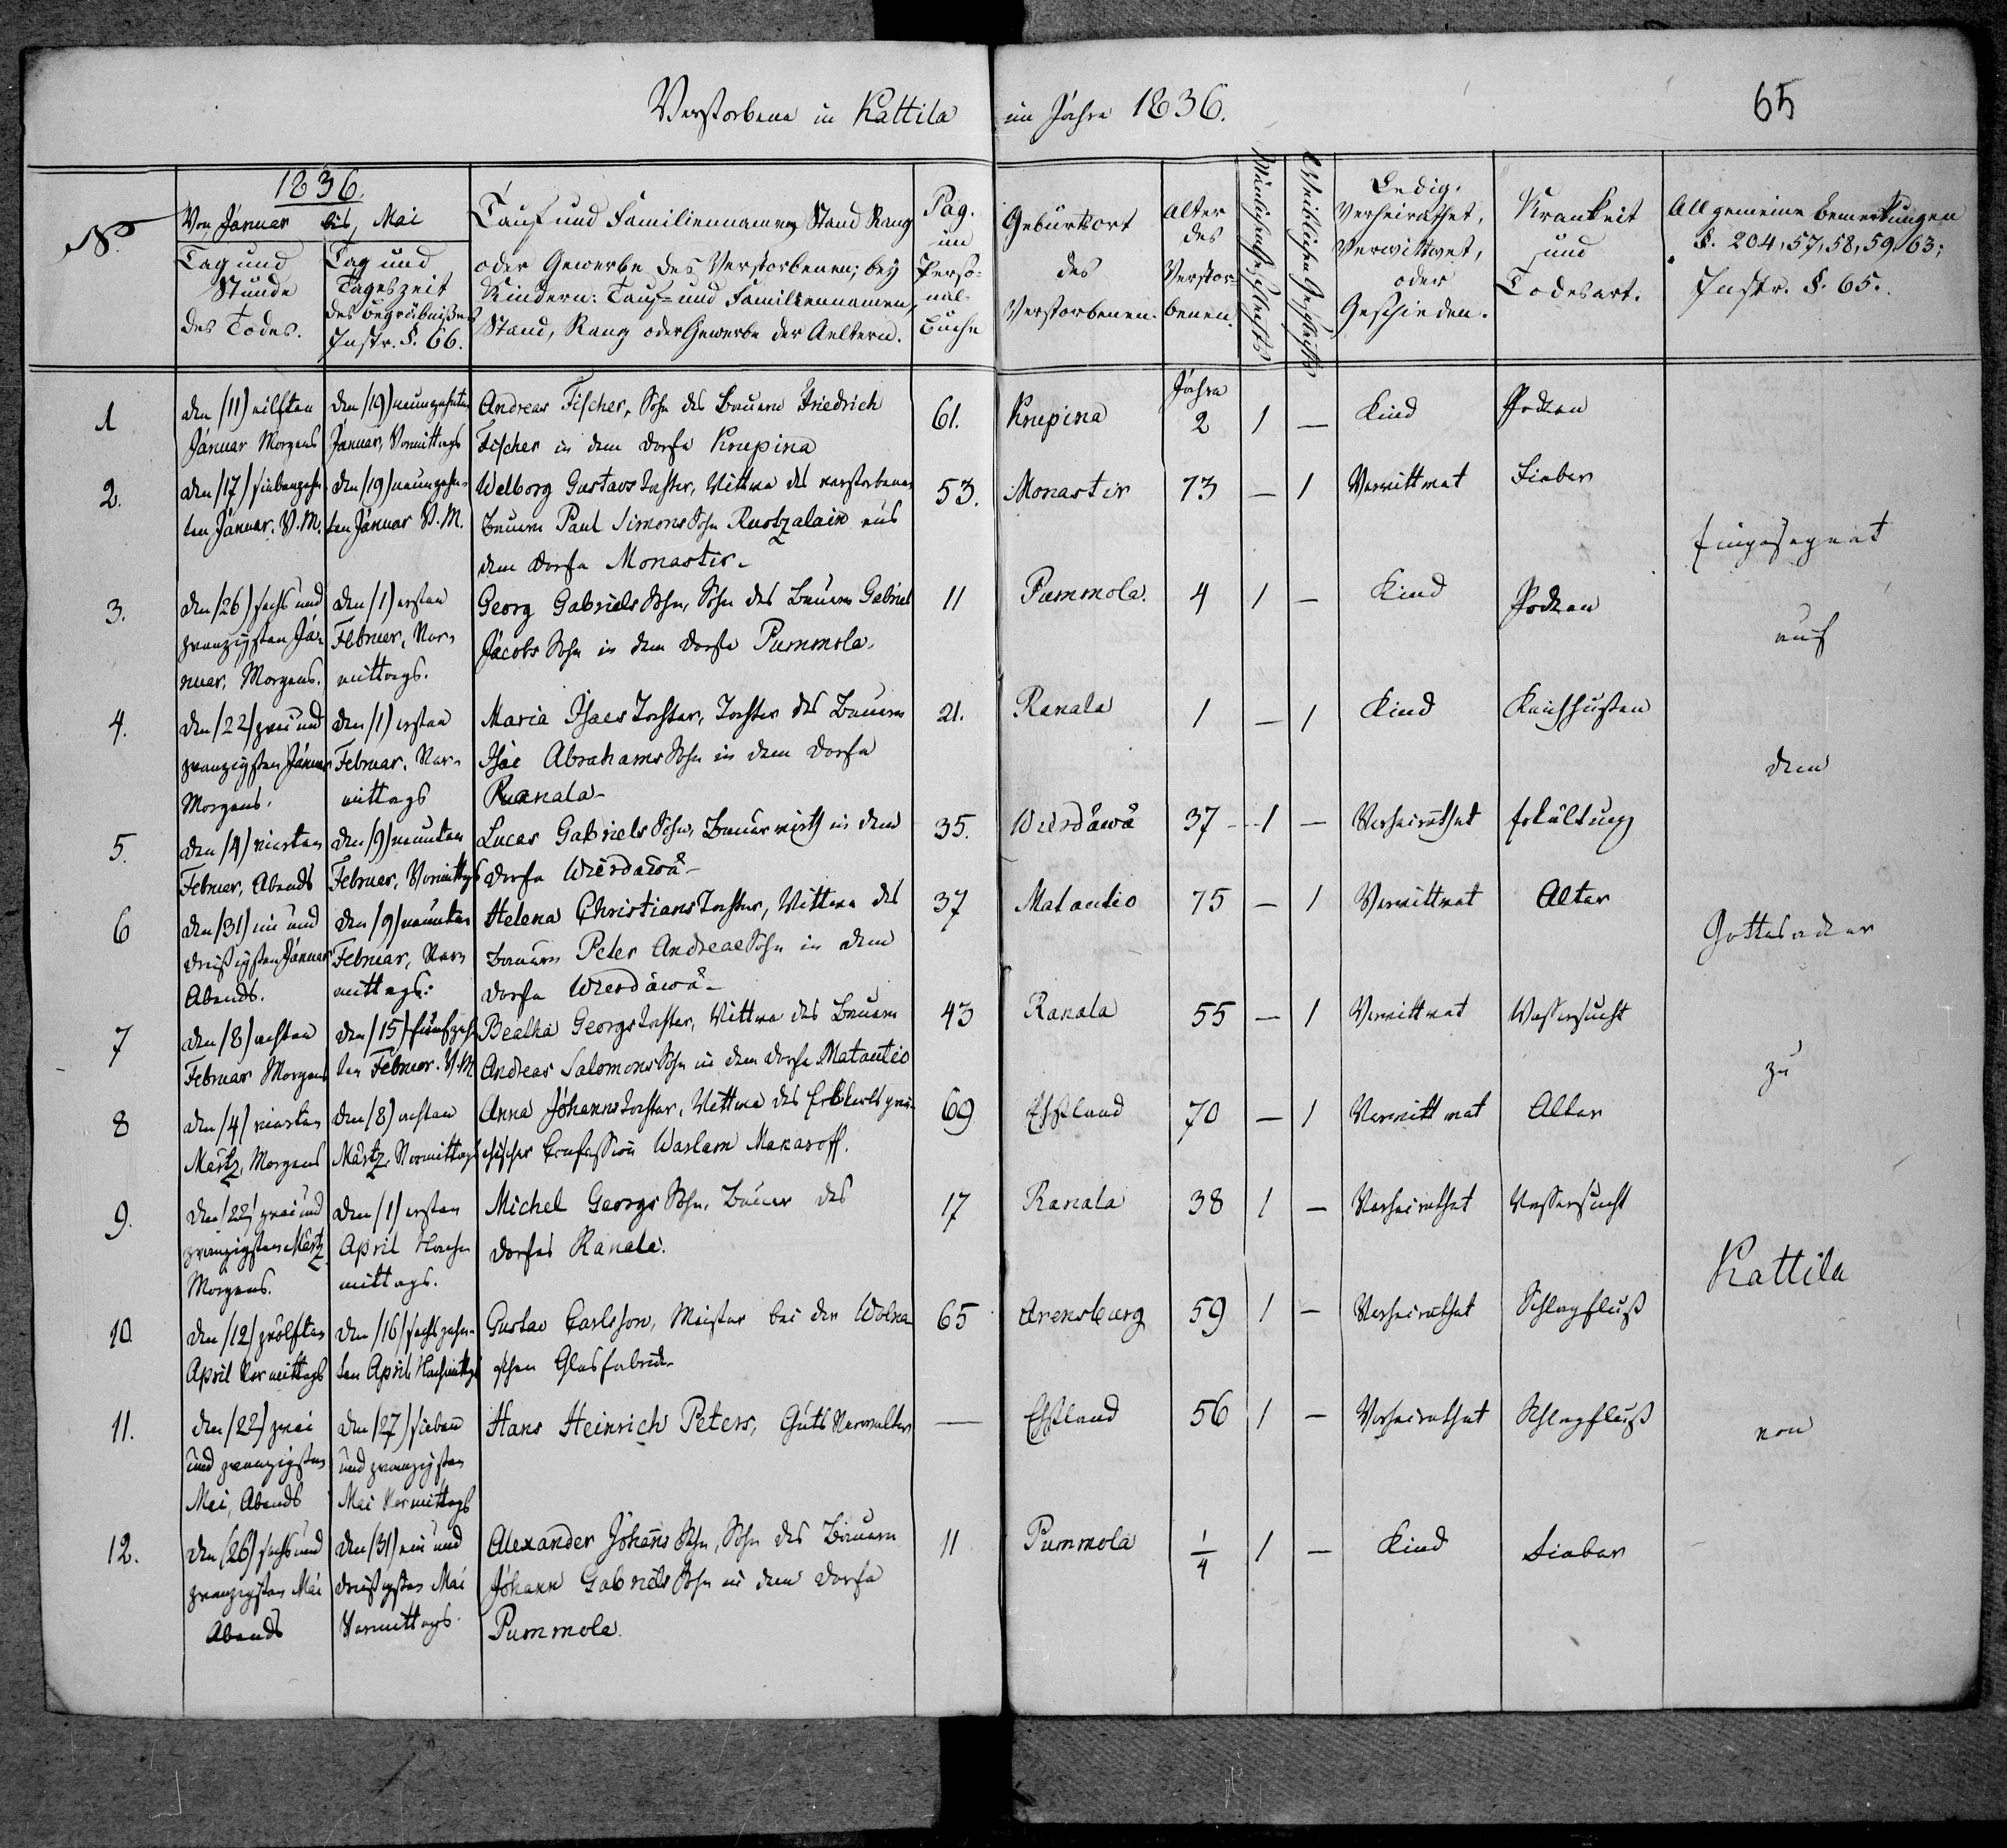 Verstorbene in Kattila im Jahre 1836.
65
1836.
No
Von Januar bis, Mai
Tag und Stunde des Todes.
Tag und Tageszeit des Begräbnißes Instr. §. 66.
Tauf und Familiennamen Stand Rang
oder Gewerbe des Verstorbenen; bey
Kindern: Tauf- und Familiennamen,
Stand, Rang oder Gewerbe der Aeltern.
Pag. im Perso-nal-Buche
Geburtsort des Verstorbenen.
Alter des Verstor-benen.
Männlichen Geschlechts
Weiblichen Geschlechts
Ledig, Verheirathet, Verwittwet, oder Geschieden.
Krankeit und Todesart.
Allgemeine Bemerkungen
§. 204, 57, 58, 59, 63;
Instr. §. 65.
1
den (11) eilften
Januar Morgens
den (19) neunzehnten
Januar, Vormittags
Andreas Fischer, Sohn des Bauern Friedrich
Fischer in dem Dorfe Krupina
61.
Krupina
Jahre
2
1
—
Kind
Pocken
2.
den (17) siebenzehn-
ten Januar. V. M.
den (19) neunzehn-
ten Januar V. M.
Welborg Gustavs Tochter, Wittwe des verstorbenen
Bauern Paul Simons Sohn Ruotzalain aus
dem Dorfe Monastir.
53.
Monastir
73
—
1
Verwittwet
Fieber
3.
den (26) sechs und
zwanzigsten Ja-
nuar, Morgens.
den (1) ersten
Februar, Vor-
mittags.
Georg Gabriels Sohn, Sohn des Bauern Gabriel
Jacobs Sohn in dem Dorfe Pummola.
11
Pummola.
4
1
—
Kind
Pocken
4.
den (22) zwei und
zwanzigsten Januar
Morgens.
den (1) ersten
Februar, Vor-
mittags
Maria Isaes Tochter, Tochter des Bauern
Isai Abrahams Sohn in dem Dorfe
Ranala
21.
Ranala
1
—
1
Kind
Keichhusten
5.
den (4) vierten
Februar, Abends
den (9) neunten
Februar, Vormittags
Lucas Gabriels Sohn, Bauerwirth in dem
Dorfe Wierdäwä
35.
Wierdäwä
37
1
—
Verheirathet
Erkältung
6
den (31) ein und
dreißigsten Januar
Abends.
den (9) neunten
Februar, Vor-
mittags.
Helena Christians Tochter, Wittwe des
Bauern Peter Andreae Sohn in dem
Dorfe Wierdäwä
37
Matautio
75
—
1
Verwittwet
Alter
7
den (8) achten
Februar Morgens
den (15) fünfzehn
ten Februar. V. M
Beatha Georgs Tochter, Wittwe des Bauern
Andreas Salomons Sohn in dem Dorfe Matautio
43
Ranala
55
—
1
Verwittwet
Wassersucht
8
den (4) vierten
Martz, Morgens
den (8) achten
Martz Vormittags
Anna Johanns Tochter, Wittwe des Erbkerls grie-
chischer Confession Warlam Makaroff.
69
Ehstland
70
—
1
Verwittwet
Alter
9.
den (22) zwei und
zwanzigsten Martz
Morgens.
den (1) ersten
April Nach-
mittags.
Michel Georgs Sohn, Bauer des
Dorfes Ranala.
17
Ranala
38
1
—
Verheirathet
Wassersucht
10
den (12) zwölften
April Vormittags
den (16) sechszehn-
ten April Nachmittags
Gustav Carlsson, Meister bei der Woina
schen Glasfabrik
65
Arensburg
59
1
—
Verheirathet
Schlagfluß
11.
den (22) zwei
und zwanzigsten
Mai, Abends
den (27) sieben
und zwanzigsten
Mai Vormittags
Hans Heinrich Peters, Guts Verwalter
—
Ehstland
56
1
—
Verheirathet
Schlagfluß
12.
den (26) sechs und
zwanzigsten Mai
Abends
den (31) ein und
dreißigsten Mai
Vormittags
Alexander Johanns Sohn, Sohn des Bauern
Johann Gabriels Sohn in dem Dorfe
Pummola.
11
Pummola
1/4
1
—
Kind
Fieber
Eingesegnet
auf
dem
Gottesacker
zu
Kattila
von